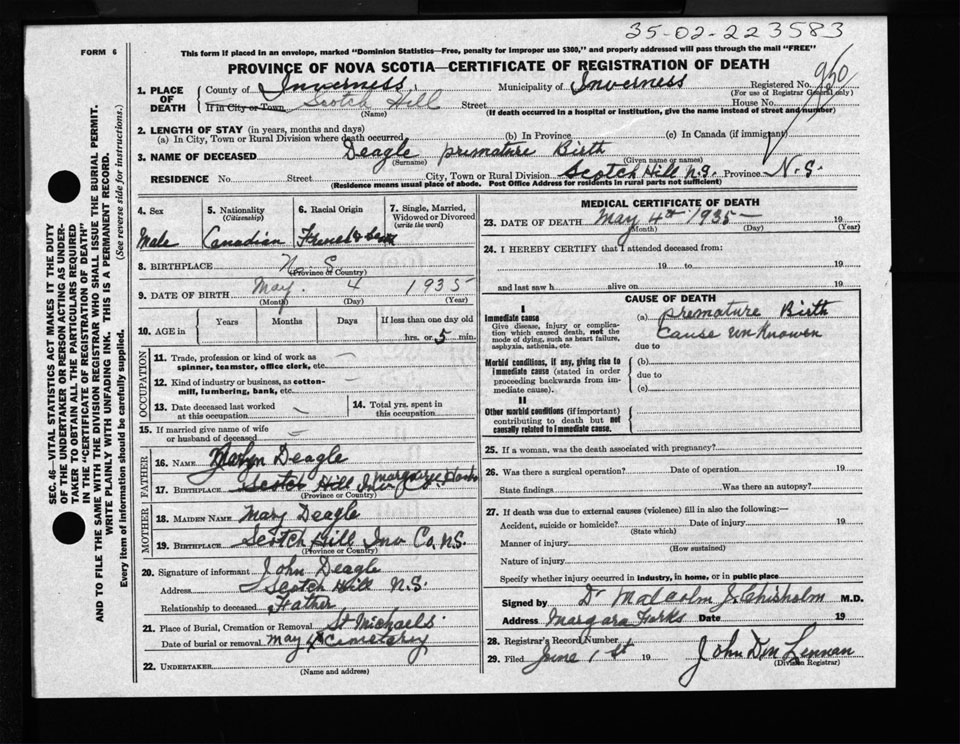 35-02-223583
FORM 6
This form if placed in an envelope, marked "Dominion Statistics—Free, penalty for improper use $300," and properly addressed will pass through the mail "FREE"
PROVINCE OF NOVA SCOTIA—CERTIFICATE OF REGISTRATION OF DEATH
1. PLACE OF DEATH
County of Inverness Municipality of Inverness Registered No. 950
(For use of Registrar General only)
If in City or Town Scotch Hill Street House No.
(Name) (If death occurred in a hospital or institution, give the name instead of street and number)
2. LENGTH OF STAY (in years, months and days)
(a) In City, Town or Rural Division where death occurred (b) In Province (c) In Canada (if immigrant)
3. NAME OF DECEASED Deagle premature Birth
(Surname) (Given name or names)
RESIDENCE No. Street City, Town or Rural Division Scotch Hill N.S. Province N.S.
(Residence means usual place of abode. Post Office Address for residents in rural parts not sufficient)
4. Sex
Male
5. Nationality
(Citizenship)
Canadian
6. Racial Origin
French &
7. Single, Married, Widowed or Divorced
(write the word)
8. BIRTHPLACE N. S.
(Province or Country)
9. DATE OF BIRTH May. 4 1935
(Month) (Day) (Year)
10. AGE in
Years Months Days If less than one day old
hrs. or 5 min.
OCCUPATION
11. Trade, profession or kind of work as spinner, teamster, office clerk, etc. —
12. Kind of industry or business, as cotton-mill, lumbering, bank, etc. —
13. Date deceased last worked at this occupation —
14. Total yrs. spent in this occupation
15. If married give name of wife or husband of deceased —
FATHER
16. NAME Deagle
17. BIRTHPLACE Scotch Hill Inv Co.
(Province or Country)
MOTHER
18. MAIDEN NAME Mary Deagle
19. BIRTHPLACE Scotch Hill Inv Co. N.S.
(Province or Country)
20. Signature of informant John Deagle
Address Scotch Hill N.S.
Relationship to deceased Father
21. Place of Burial, Cremation or Removal St Michaels
Date of burial or removal May 4 Cemetery
22. UNDERTAKER
(Name and address)
MEDICAL CERTIFICATE OF DEATH
23. DATE OF DEATH May 4th 1935 — 19
(Month) (Day) (Year)
24. I HEREBY CERTIFY that I attended deceased from:
19 to 19
and last saw h alive on 19
CAUSE OF DEATH
I
Immediate cause
Give disease, injury or complication which caused death, not the mode of dying, such as heart failure, asphyxia, asthenia, etc.
(a) premature Birth
cause unKnowen
due to
Morbid conditions, if any, giving rise to immediate cause (stated in order proceeding backwards from immediate cause).
(b)
due to
(c)
II
Other morbid conditions (if important) contributing to death but not causally related to immediate cause.
25. If a woman, was the death associated with pregnancy?
26. Was there a surgical operation? Date of operation 19
State findings Was there an autopsy?
27. If death was due to external causes (violence) fill in also the following:—
Accident, suicide or homicide? Date of injury 19
(State which)
Manner of injury
(How sustained)
Nature of injury
Specify whether injury occurred in industry, in home, or in public place
Signed by Dr Malcolm J. Chisholm M.D.
Address Margara Forks Date 19
28. Registrar's Record Number
29. Filed June 1st 19 John D Mc Lennan
(Division Registrar)
SEC. 46—VITAL STATISTICS ACT MAKES IT THE DUTY
OF THE UNDERTAKER OR PERSON ACTING AS UNDER-
TAKER TO OBTAIN ALL THE PARTICULARS REQUIRED
IN THE "CERTIFICATE OF REGISTRATION OF DEATH"
AND TO FILE THE SAME WITH THE DIVISION REGISTRAR WHO SHALL ISSUE THE BURIAL PERMIT.
WRITE PLAINLY WITH UNFADING INK. THIS IS A PERMANENT RECORD.
Every item of information should be carefully supplied. (See reverse side for instructions.)